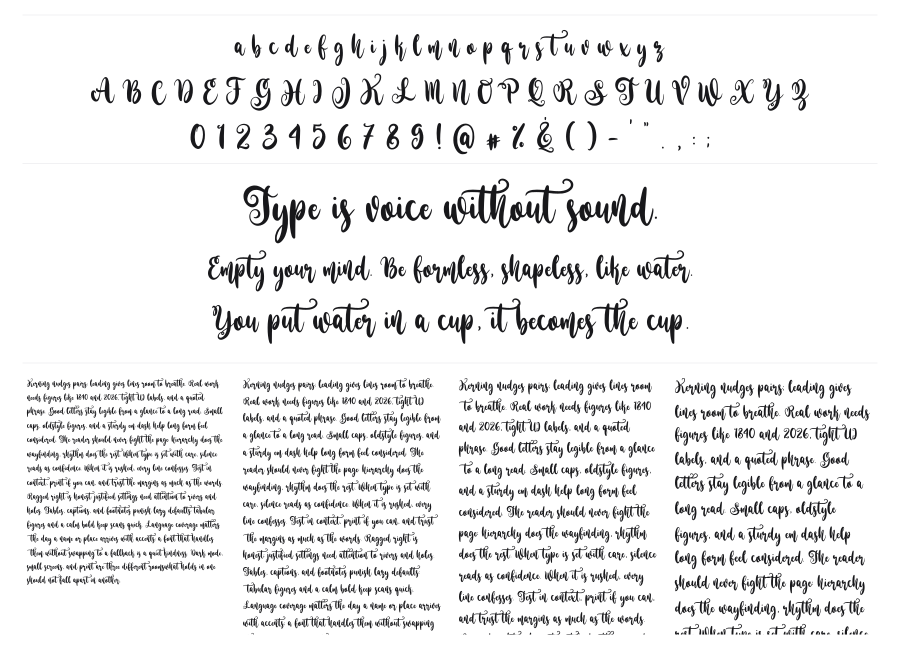 a b c d e f g h i j k l m n o p q r s t u v w x y z
A B C D E F G H I J K L M N O P Q R S T U V W X Y Z
0 1 2 3 4 5 6 7 8 9 ! @ # % & ( ) - ' " . , : ;
Type is voice without sound.
Empty your mind. Be formless, shapeless, like water.
You put water in a cup, it becomes the cup.
Kerning nudges pairs; leading gives lines room to breathe. Real work
needs figures like 1840 and 2026, tight UI labels, and a quoted
phrase. Good letters stay legible from a glance to a long read. Small
caps, oldstyle figures, and a sturdy en dash help long form feel
considered. The reader should never fight the page hierarchy does the
wayfinding, rhythm does the rest. When type is set with care, silence
reads as confidence. When it is rushed, every line confesses. Test in
context, print if you can, and trust the margins as much as the words.
Ragged right is honest; justified settings need attention to rivers and
holes. Tables, captions, and footnotes punish lazy defaults; tabular
figures and a calm bold keep scans quick. Language coverage matters
the day a name or place arrives with accents; a font that handles
them without swapping to a fallback is a quiet kindness. Dark mode,
small screens, and print are three different rooms; what holds in one
should not fall apart in another.
Kerning nudges pairs; leading gives lines room to breathe.
Real work needs figures like 1840 and 2026, tight UI
labels, and a quoted phrase. Good letters stay legible from
a glance to a long read. Small caps, oldstyle figures, and
a sturdy en dash help long form feel considered. The
reader should never fight the page hierarchy does the
wayfinding, rhythm does the rest. When type is set with
care, silence reads as confidence. When it is rushed, every
line confesses. Test in context, print if you can, and trust
the margins as much as the words. Ragged right is
honest; justified settings need attention to rivers and holes.
Tables, captions, and footnotes punish lazy defaults;
tabular figures and a calm bold keep scans quick.
Language coverage matters the day a name or place arrives
with accents; a font that handles them without swapping
Kerning nudges pairs; leading gives lines room
to breathe. Real work needs figures like 1840
and 2026, tight UI labels, and a quoted
phrase. Good letters stay legible from a glance
to a long read. Small caps, oldstyle figures,
and a sturdy en dash help long form feel
considered. The reader should never fight the
page hierarchy does the wayfinding, rhythm
does the rest. When type is set with care, silence
reads as confidence. When it is rushed, every
line confesses. Test in context, print if you can,
and trust the margins as much as the words.
Kerning nudges pairs; leading gives
lines room to breathe. Real work needs
figures like 1840 and 2026, tight UI
labels, and a quoted phrase. Good
letters stay legible from a glance to a
long read. Small caps, oldstyle
figures, and a sturdy en dash help
long form feel considered. The reader
should never fight the page hierarchy
does the wayfinding, rhythm does the
rest. When type is set with care, silence